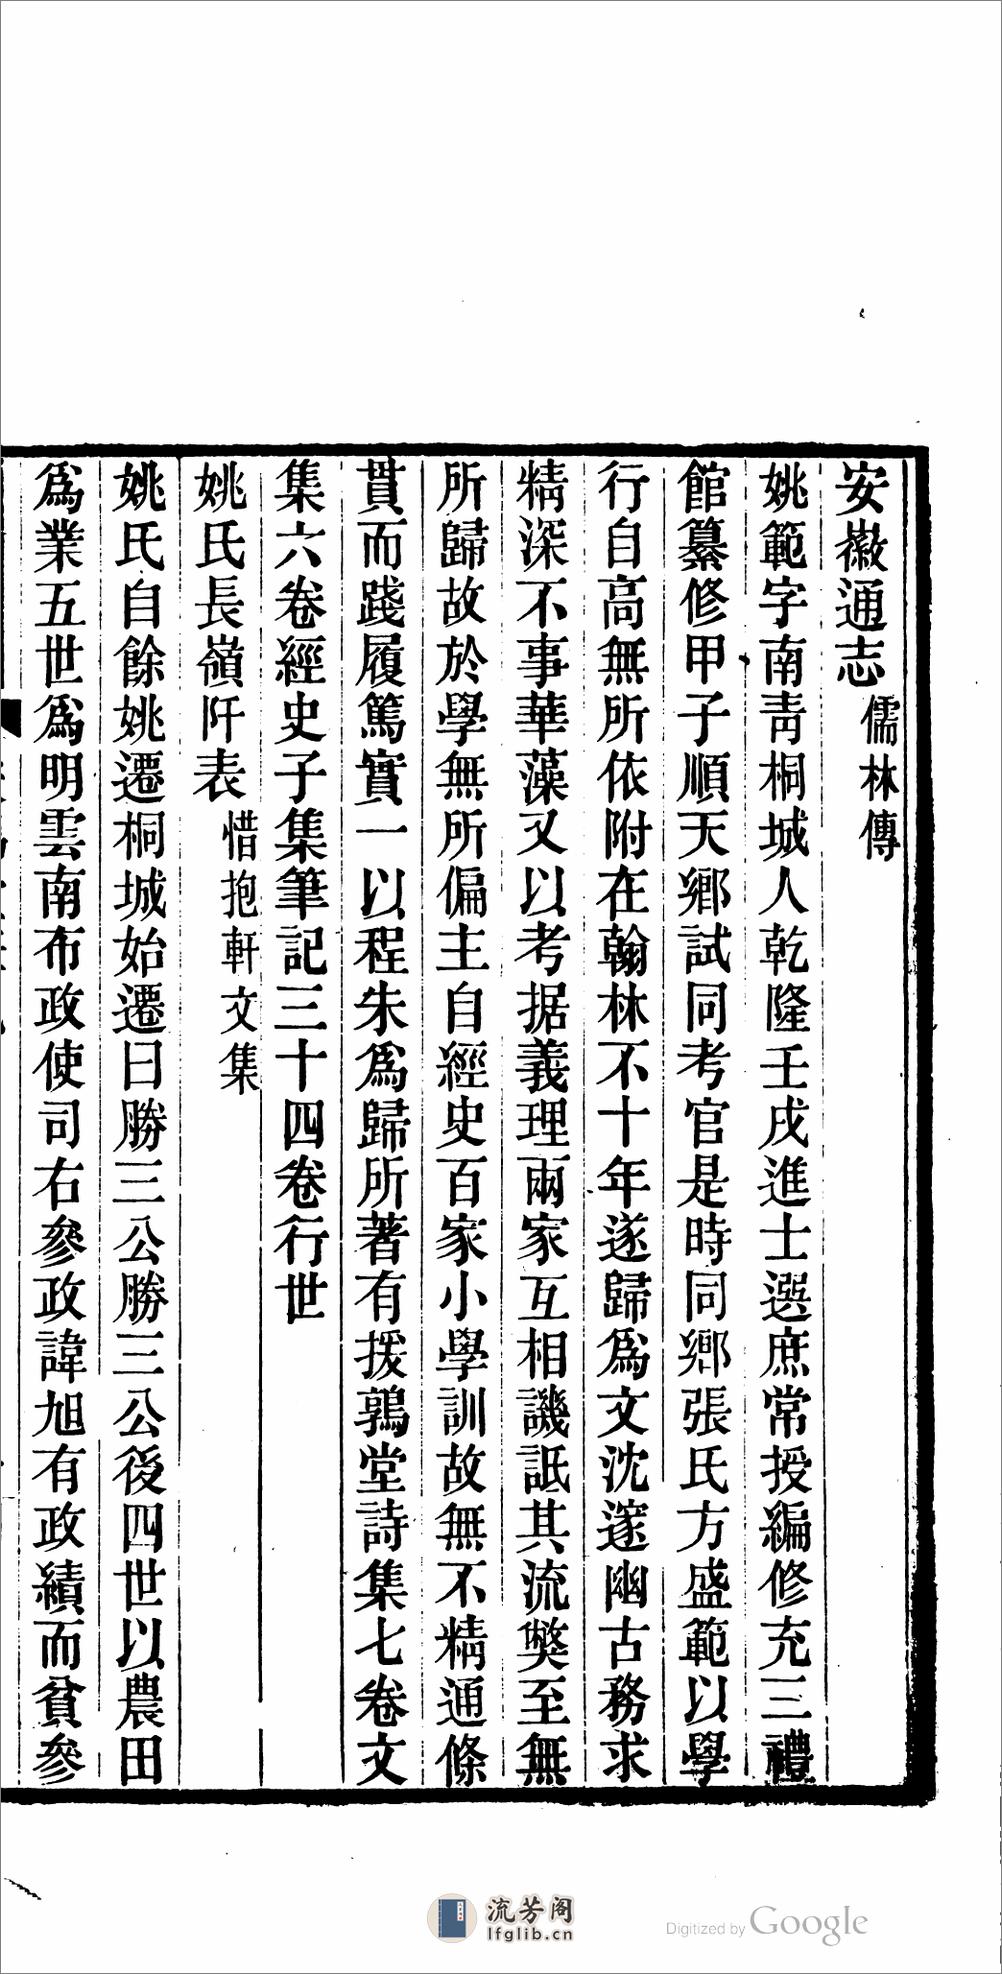 安徽通志儒林傳
姚範字南靑桐城人乾隆壬戌進士選庶常授編修充三禮
館纂修甲子順天鄉試同考官是時同鄉張氏方盛範以學
行自高無所依附在翰林不十年遂歸爲文沈邃幽古務求
精深不事華藻又以考据義理兩家互相譏詆其流獘至無
所歸故於學無所偏主自經史百家小學訓故無不精通條
貫而踐履篤實一以程朱爲歸所著有援鶉堂詩集七卷文
集六卷經史子集筆記三十四卷行世
姚氏長嶺阡表惜抱軒文集
姚氏自餘姚遷桐城始遷曰勝三公勝三公後四世以農田
爲業五世爲明雲南布政使司右參政諱旭有政績而貧參
流芳阁
lfglib.cn
Digitized by Google